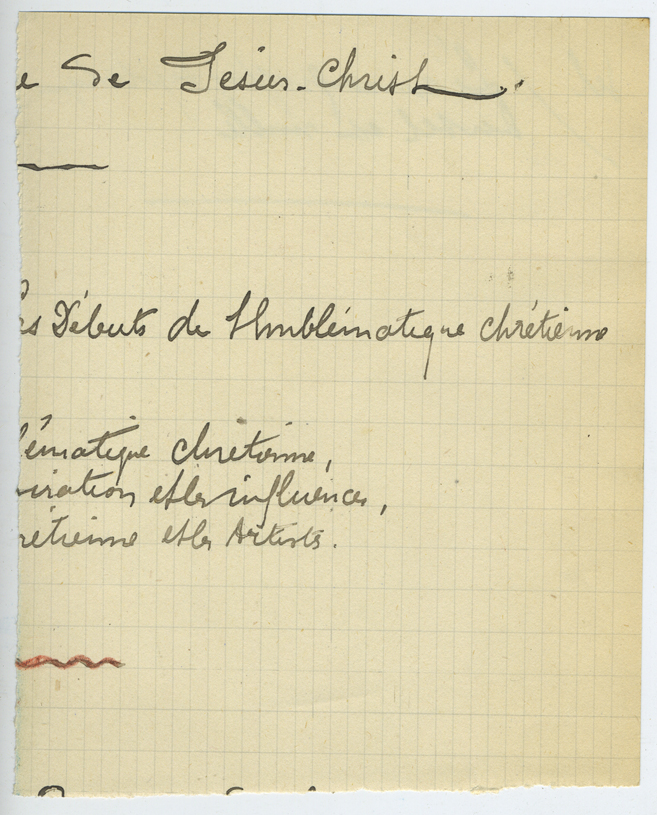 e de Jésus-Christ.
es Débuts de l'Emblématique chrétienne
ématique chrétienne,
iration et les influences,
rétienne et les Artistes.